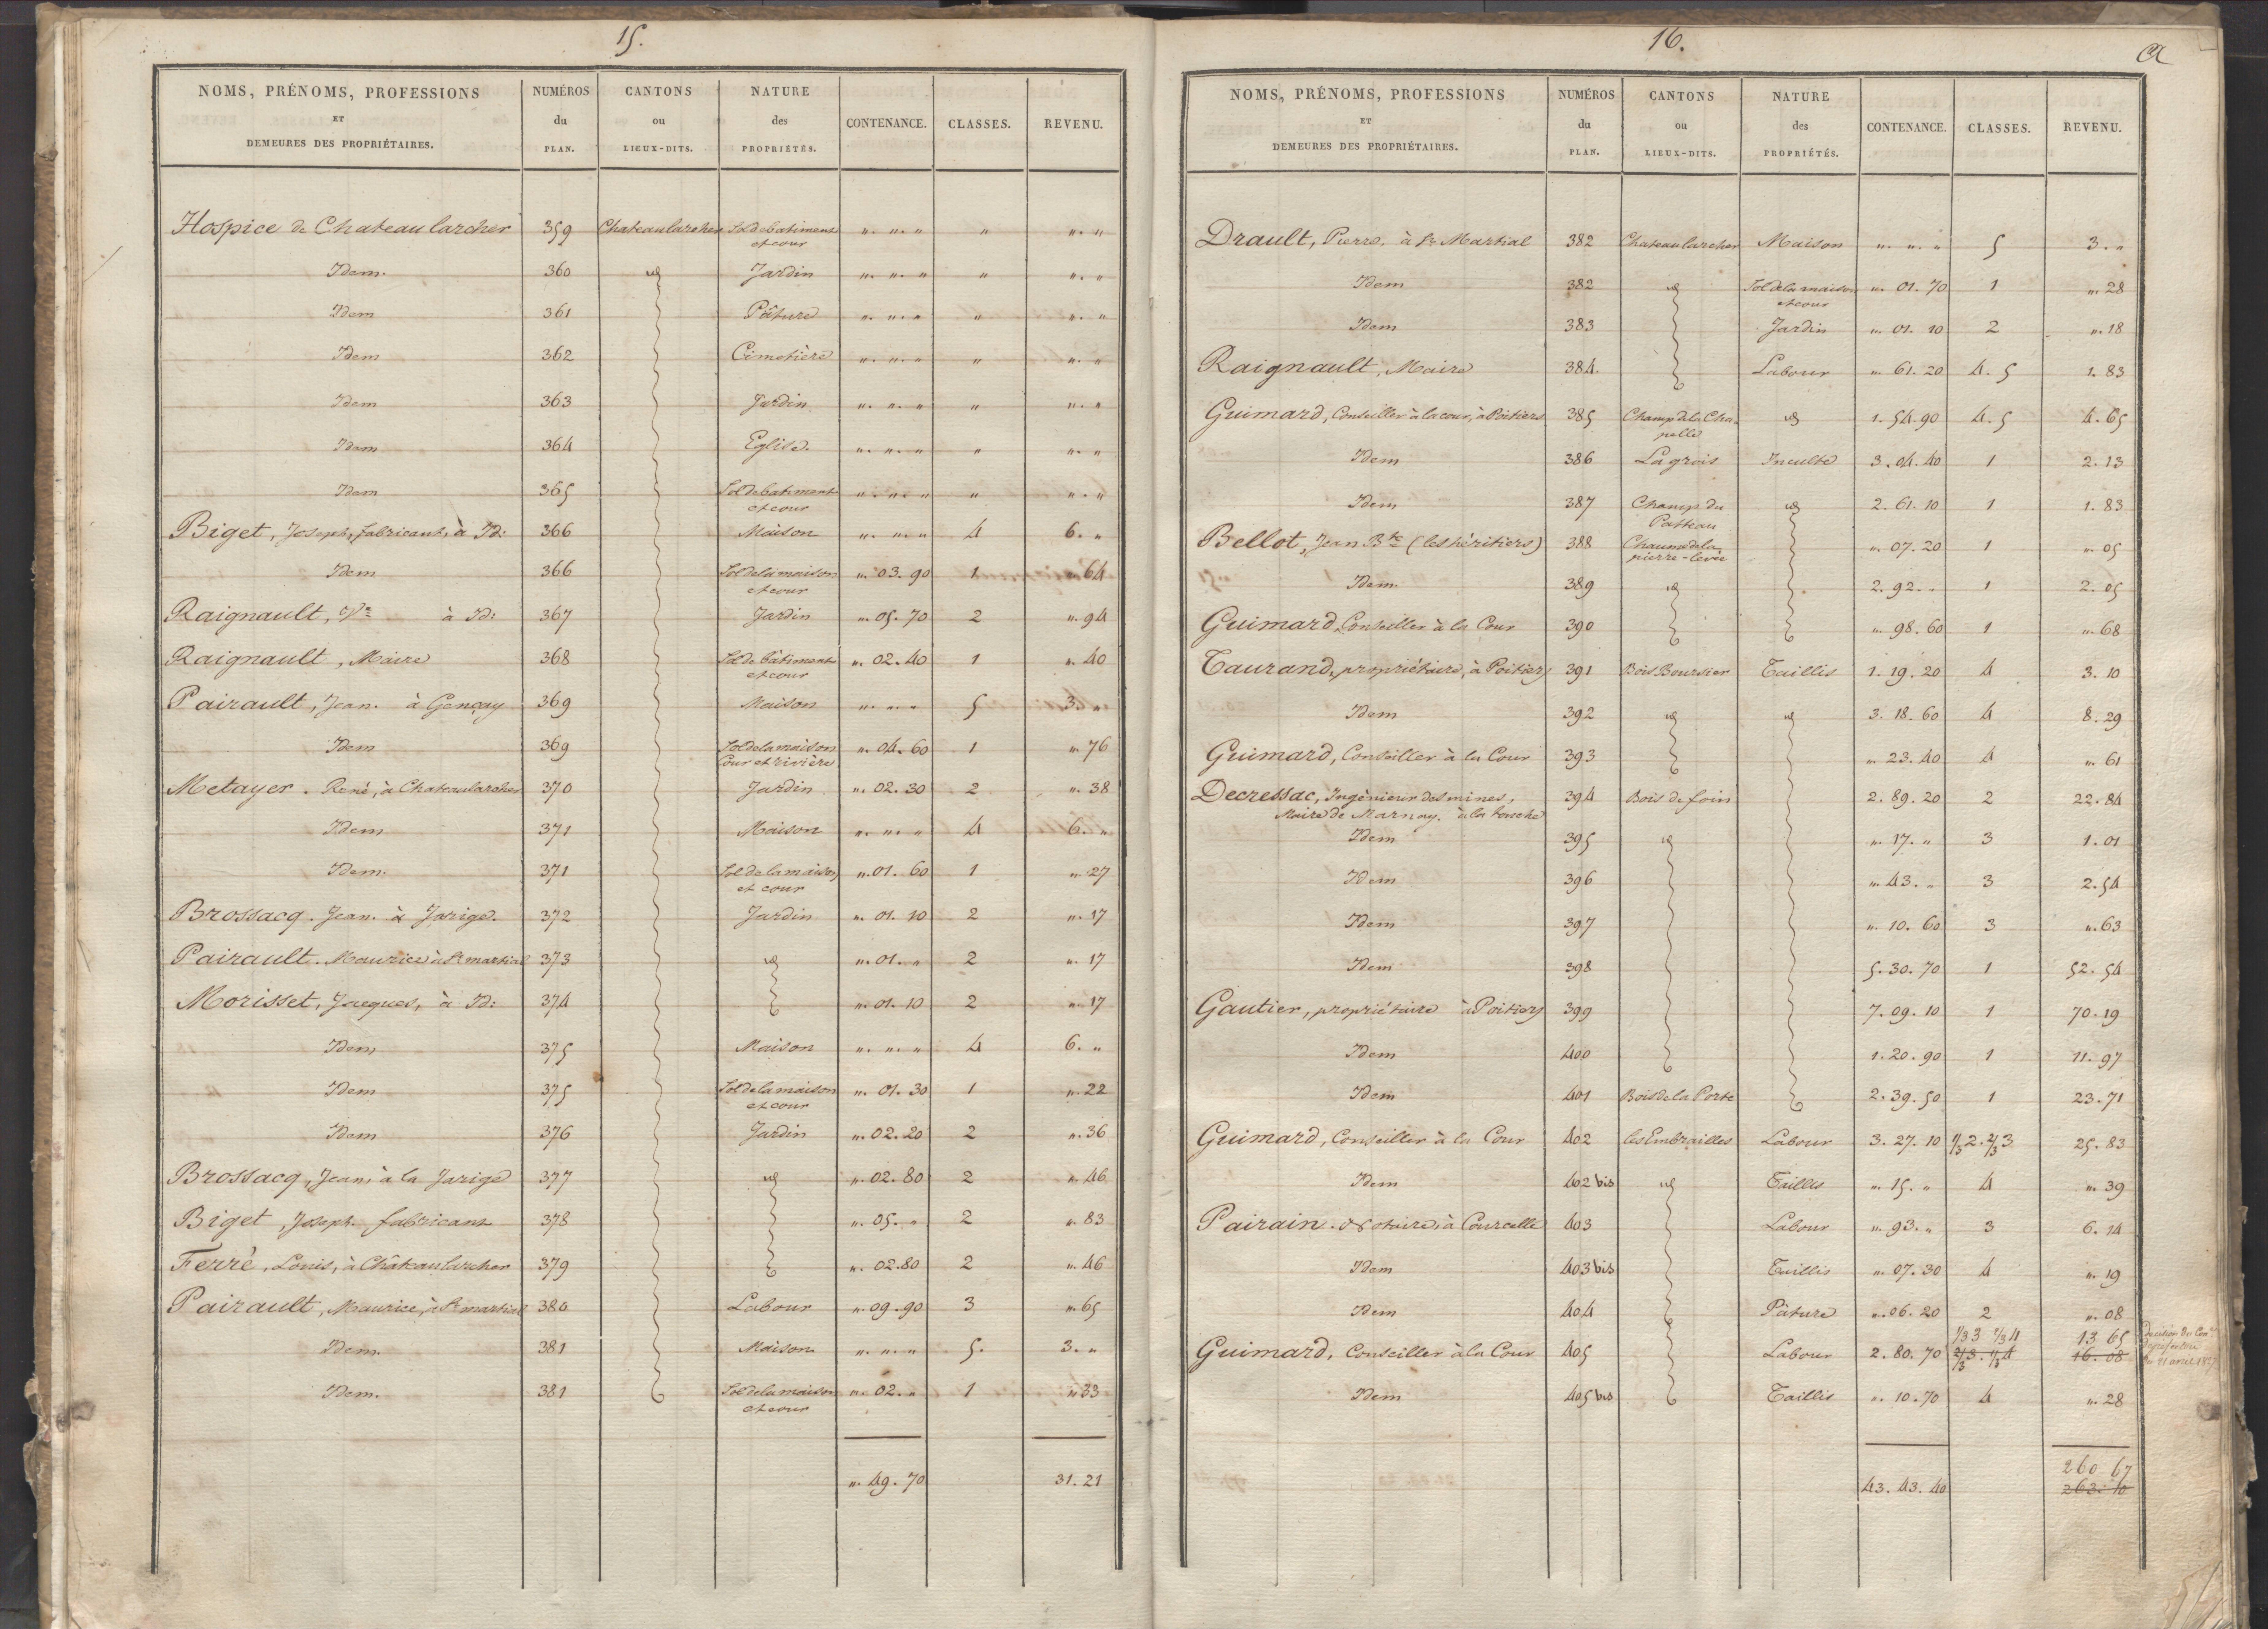 15.
NOMS, PRÉNOMS, PROFESSIONS ET DEMEURES DES PROPRIÉTAIRES. NUMÉROS du PLAN. CANTONS ou LIEUX-DITS. NATURE des PROPRIÉTÉS. CONTENANCE. CLASSES. REVENU.
Hospice de Chateaularcher 359 Chateaularcher Sol de batiment et cour „. „. „ „ „. „
Idem. 360 id Jardin „. „. „ „ „. „
Idem 361 Pâture „. „. „ „ „. „
Idem 362 Cimetière „. „. „ „ „. „
Idem 363 Jardin „. „. „ „ „. „
Idem 364 Eglise. „. „. „ „ „. „
Idem 365 Sol de batiment et cour „. „. „ „ „. „
Biget, Joseph, fabricant, à Id: 366 Maison „. „. „ 4 6. „
Idem 366 Sol de la maison et cour „. 03. 90 1 „. 64
Raignault, Ve à Id: 367 Jardin „. 05. 70 2 „. 94
Raignault, Maire 368 Sol de bâtiment et cour „. 02. 40 1 „. 40
Pairault, Jean. à Gençay 369 Maison „. „. „ 5 3. „
Idem 369 Sol de la maison Cour et rivière „. 04. 60 1 „. 76
Metayer. René, à Chateaularcher 370 Jardin „. 02. 30 2 „. 38
Idem 371 Maison „. „. „ 4 6. „
Idem. 371 Sol de la maison et cour „. 01. 60 1 „. 27
Brossacq. Jean. à Jarige. 372 Jardin „. 01. 10 2 „. 17
Pairault. Maurice à St martial 373 id „. 01. „ 2 „. 17
Morisset, Jacques, à Id: 374 „. 01. 10 2 „. 17
Idem 375 Maison „. „. „ 4 6. „
Idem 375 Sol de la maison et cour „. 01. 30 1 „. 22
Idem 376 Jardin „. 02. 20 2 „. 36
Brossacq, Jean, à la Jarige 377 id „. 02. 80 2 „. 46
Biget, Joseph. fabricant 378 „. 05. „ 2 „. 83
Ferré, Louis, à Châteaularcher 379 „. 02. 80 2 „. 46
Pairault, Maurice, à St martial 380 Labour „. 09. 90 3 „. 65
Idem. 381 Maison „. „. „ 5. 3. „
Idem. 381 Sol de la maison et cour „. 02. „ 1 „. 33
„. 49. 70 31. 21
16.
NOMS, PRÉNOMS, PROFESSIONS ET DEMEURES DES PROPRIÉTAIRES. NUMÉROS du PLAN. CANTONS ou LIEUX-DITS. NATURE des PROPRIÉTÉS. CONTENANCE. CLASSES. REVENU.
Drault, Pierre. à St Martial 382 Chateaularcher Maison „. „. „ 5 3. „
Idem 382 id Sol de la maison et cour „. 01. 70 1 „. 28
Idem 383 Jardin „. 01. 10 2 „. 18
Raignault, Maire 384. Labour „. 61. 20 4. 5 1. 83
Guimard, Conseiller à la cour, à Poitiers 385 Champ de la Chapelle id 1. 54. 90 4. 5 4. 65
Idem 386 La grois Inculte 3. 04. 40 1 2. 13
Idem 387 Champ du Patteau id 2. 61. 10 1 1. 83
Bellot, Jean Bte (les héritiers) 388 Chaume de la pierre-levée „. 07. 20 1 „. 05
Idem. 389 id 2. 92. „ 1 2. 05
Guimard, Conseiller à la Cour 390 „. 98. 60 1 „. 68
Taurand, propriétaire, à Poitiers 391 Bois Boursier Taillis 1. 19. 20 4 3. 10
Idem 392 id id 3. 18. 60 4 8. 29
Guimard, Conseiller à la Cour 393 „. 23. 40 4 „. 61
Decressac, Ingénieur des mines, Maire de Marnay. à la touche 394 Bois de foin 2. 89. 20 2 22. 84
Idem 395 id „. 17. „ 3 1. 01
Idem 396 „. 43. „ 3 2. 54
Idem 397 „. 10. 60 3 „. 63
Idem 398 5. 30. 70 1 52. 54
Gautier, propriétaire à Poitiers 399 7. 09. 10 1 70. 19
Idem 400 1. 20. 90 1 11. 97
Idem 401 Bois de la Porte 2. 39. 50 1 23. 71
Guimard, Conseiller à la Cour 402 les Embrailles Labour 3. 27. 10 1/3 2. 2/3 3 25. 83
Idem 402 bis id Taillis „. 15. „ 4 „. 39
Pairain. Notaire, à Courcelle 403 Labour „. 93. „ 3 6. 14
Idem 403 bis Taillis „. 07. 30 4 „. 19
Idem 404 Pâture „. 06. 20 2 „. 08
1/3 3 2/3 4 13 65
Guimard, Conseiller à la Cour 405 Labour 2. 80. 70 2/3 3. 1/3 4 16. 08
Idem 405 bis Taillis „. 10. 70 4 „. 28
260 67
43. 43. 40 263. 10